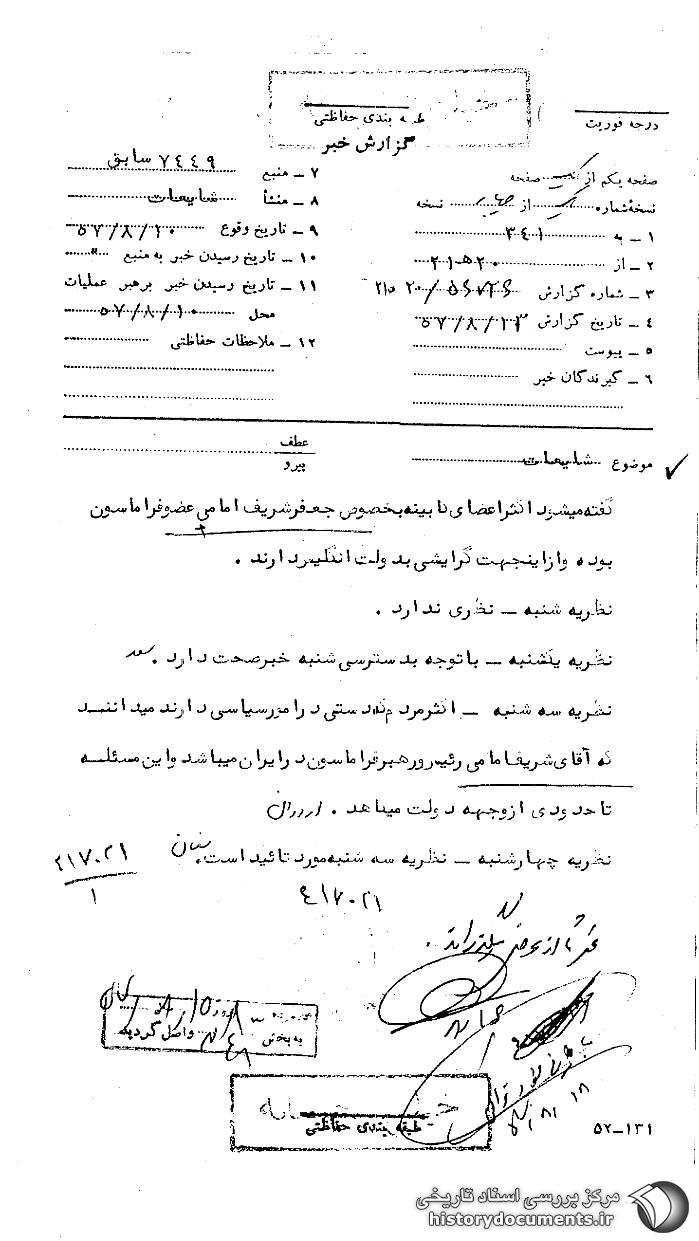 طبقه بندی حفاظتی
درجه فوریت
گزارش خبر
صفحه یکم از یک صفحه
نسخه شماره یک از چهار نسخه
۱ – به ۳۴۱
۲ – از ۲۱ه۲۰
۳ – شماره گزارش
۴ – تاریخ گزارش ۵۷/۸/۱۳
۵ – پیوست
۶ – گیرندگان خبر
۷ – منبع ۷۴۴۹ سابق
۸ – منشأ شایعات
۹ – تاریخ وقوع ۵۷/۸/۱۰
۱۰ – تاریخ رسیدن خبر به منبع
۱۱ – تاریخ رسیدن خبر برهبر عملیات
محل ۵۷/۸/۱۰
۱۲ – ملاحظات حفاظتی
موضوع شایعات
عطف
پیرو
گفته میشود اکثر اعضای کابینه بخصوص جعفر شریف امامی عضو فراماسون
بوده و از اینجهت گرایشی بدولت انگلیس دارند .
نظریه شنبه – نظری ندارد .
نظریه یکشنبه – با توجه بدسترسی شنبه خبر صحت دارد . سعد
نظریه سه شنبه – اکثر مردم که دستی در امور سیاسی دارند میدانند
که آقای شریف امامی رئیس و رهبر فراماسون در ایران میباشد و این مسئله
تا حدودی از وجهه دولت میکاهد .
نظریه چهارشنبه – نظریه سه شنبه مورد تائید است .
۴۱۷۰۲۱
۱
۴۱۷۰۲۱
واصل گردید
به بخش
طبقه بندی حفاظتی
۵۲–۱۳۱
مرکز بررسی اسناد تاریخی
historydocuments.ir